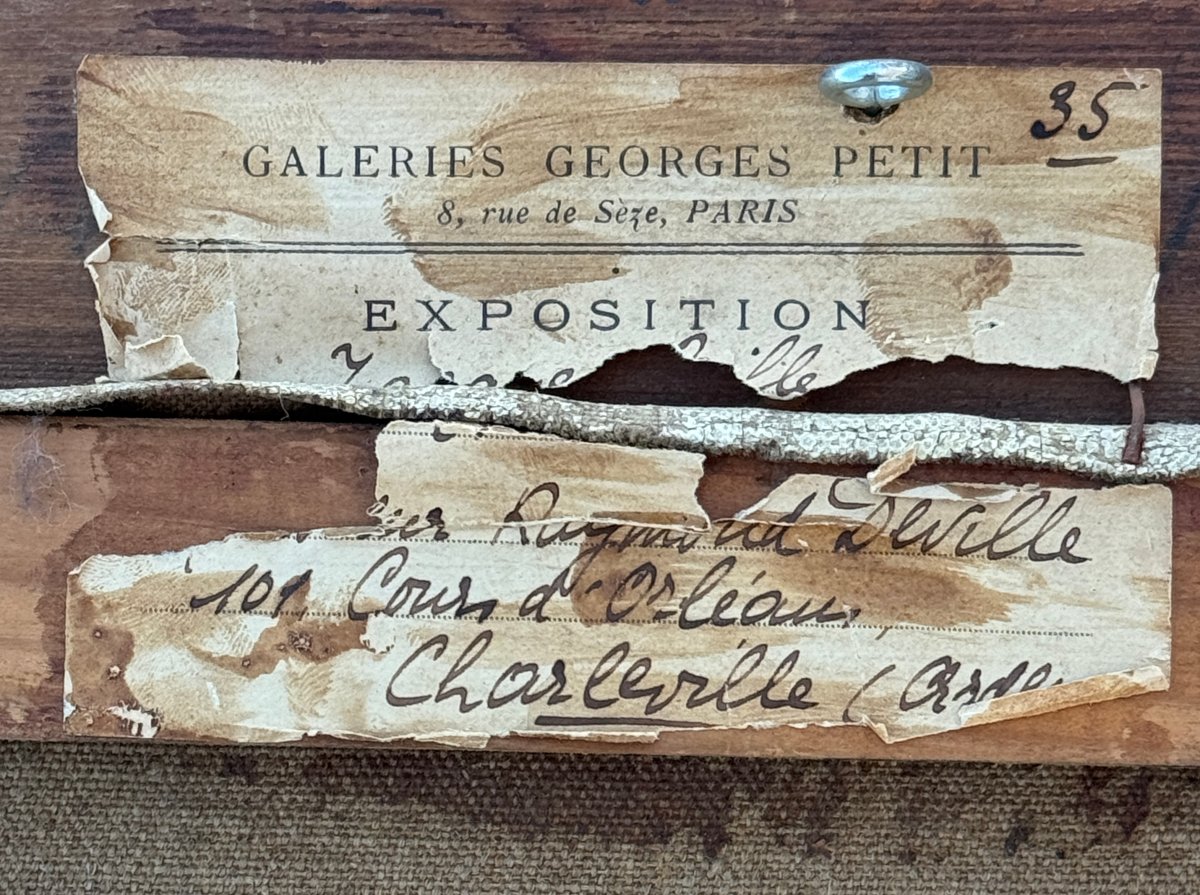 35
GALERIES GEORGES PETIT
8, rue de Sèze, PARIS
EXPOSITION
Raymond Deville
101, Cours d'Orléans,
Charleville (Arde